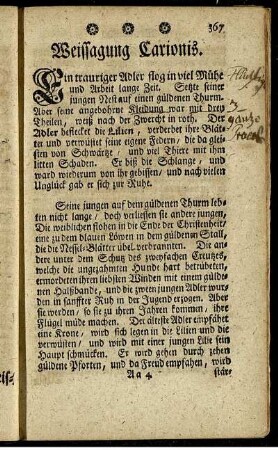 367
Weissagung Carionis.
Ein trauriger Adler flog in viel Mühe
und Arbeit lange Zeit. Setzte seiner
jungen Nest auf einen güldenen Thurm.
Aber seine angebohrne Kleidung war mit drey
Theilen, weiß nach der Zwercht in roth. Der
Adler beflecket die Lilien, verderbet ihre Blät-
ter und verwüstet seine eigene Federn, die da glei-
sten von Schwärtze, und viel Thiere mit ihm
litten Schaden. Er biß die Schlange, und
ward wiederum von ihr gebissen, und nach vielen
Unglück gab er sich zur Ruhe.
Seine jungen auf dem güldenen Thurm leb-
ten nicht lange, doch verliessen sie andere jungen,
Die weiblichen flohen in die Ende der Christenheit,
eine zu dem blauen Löwen in dem güldenen Stall,
die die Nessel-Blätter übel verbrannten. Die an-
dere unter dem Schutz des zweyfachen Creutzes,
welche die ungezähmten Hunde hart betrübeten,
ermordeten ihren liebsten Winden mit einem gülde-
nen Halßbande, und die zween jungen Adler wur-
den in sanffter Ruh in der Jugend erzogen. Aber
sie werden, so sie zu ihren Jahren kommen, ihre
Flügel müde machen. Der älteste Adler empfähet
eine Krone, wird sich legen in die Lilien und die
verwüsten, und wird mit einer jungen Lilie sein
Haupt schmücken. Er wird gehen durch zehen
güldene Pforten, und da Freud empfahen, wird
Aa 4 stär-